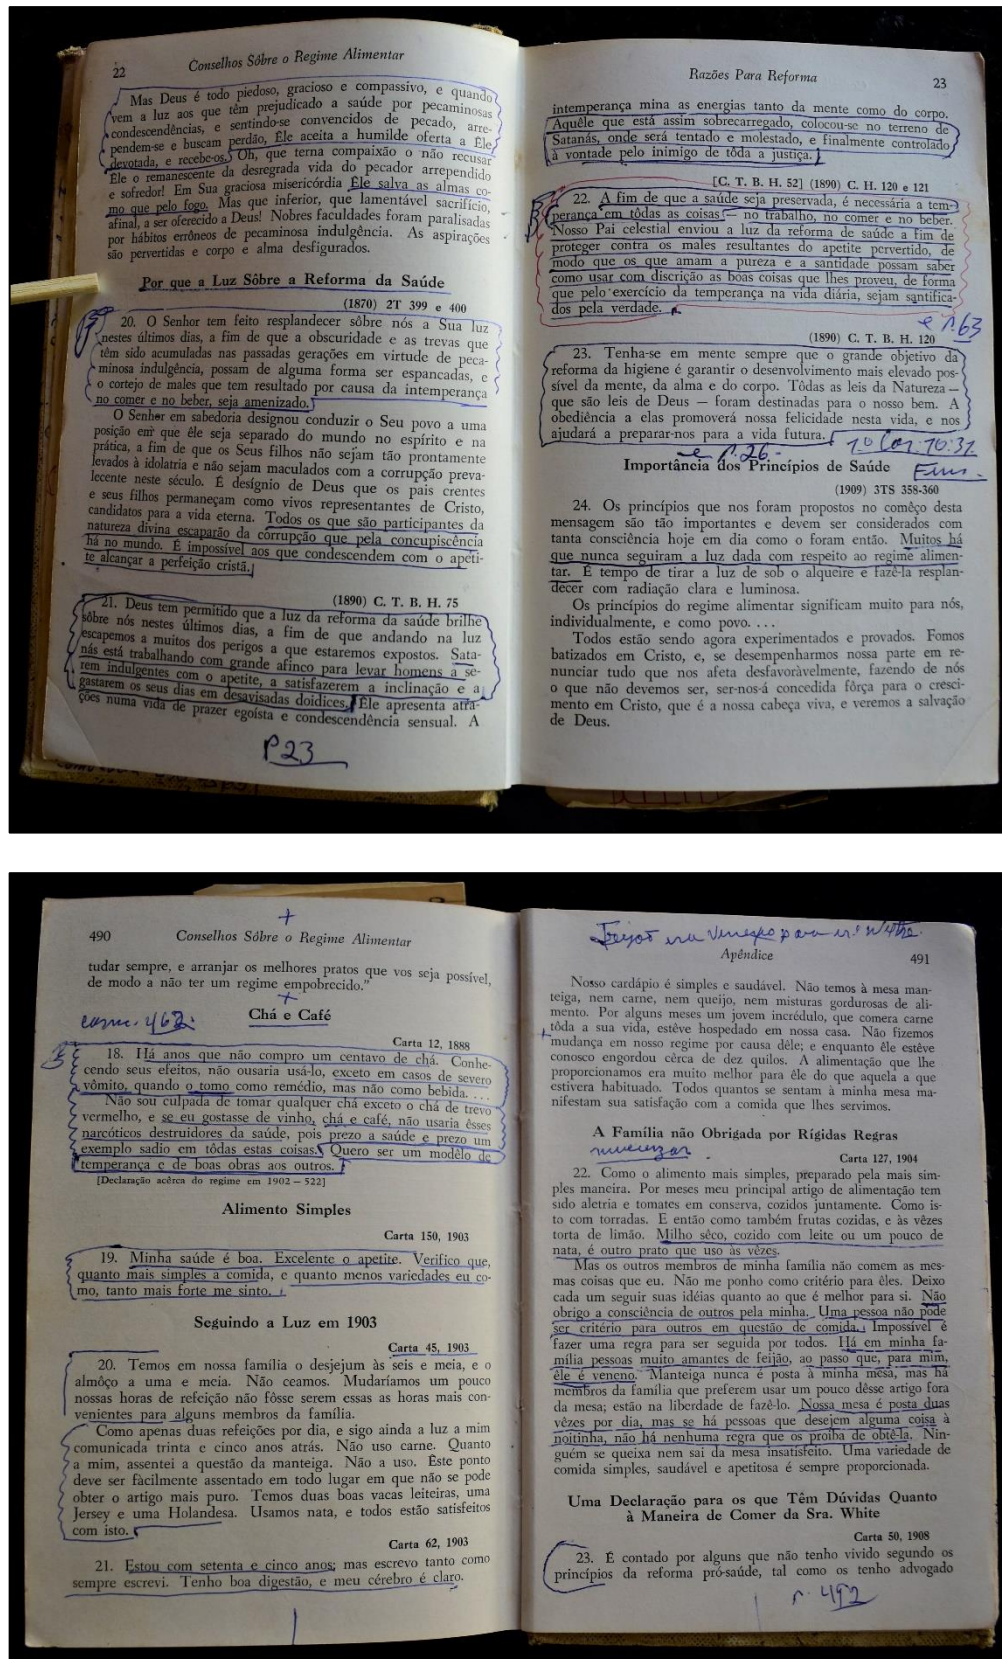 22
Conselhos Sôbre o Regime Alimentar
Mas Deus é todo piedoso, gracioso e compassivo, e quando
vem a luz aos que têm prejudicado a saúde por pecaminosas
condescendências, e sentindo-se convencidos de pecado, arre-
pendem-se e buscam perdão, Êle aceita a humilde oferta a Êle
devotada, e recebe-os. Oh, que terna compaixão o não recusar
Êle o remanescente da desregrada vida do pecador arrependido
e sofredor! Em Sua graciosa misericórdia Êle salva as almas co-
mo que pelo fogo. Mas que inferior, que lamentável sacrifício,
afinal, a ser oferecido a Deus! Nobres faculdades foram paralisadas
por hábitos errôneos de pecaminosa indulgência. As aspirações
são pervertidas e corpo e alma desfigurados.
Por que a Luz Sôbre a Reforma da Saúde
(1870) 2T 399 e 400
20. O Senhor tem feito resplandecer sôbre nós a Sua luz
nestes últimos dias, a fim de que a obscuridade e as trevas que
têm sido acumuladas nas passadas gerações em virtude de peca-
minosa indulgência, possam de alguma forma ser espancadas, e
o cortejo de males que tem resultado por causa da intemperança
no comer e no beber, seja amenizado.
O Senhor em sabedoria designou conduzir o Seu povo a uma
posição em que êle seja separado do mundo no espírito e na
prática, a fim de que os Seus filhos não sejam tão prontamente
levados à idolatria e não sejam maculados com a corrupção preva-
lecente neste século. É desígnio de Deus que os pais crentes
e seus filhos permaneçam como vivos representantes de Cristo,
candidatos para a vida eterna. Todos os que são participantes da
natureza divina escaparão da corrupção que pela concupiscência
há no mundo. É impossível aos que condescendem com o apeti-
te alcançar a perfeição cristã.
(1890) C. T. B. H. 75
21. Deus tem permitido que a luz da reforma da saúde brilhe
sôbre nós nestes últimos dias, a fim de que andando na luz
escapemos a muitos dos perigos a que estaremos expostos. Sata-
nás está trabalhando com grande afinco para levar homens a se-
rem indulgentes com o apetite, a satisfazerem a inclinação e a
gastarem os seus dias em desavisadas doidices. Êle apresenta atra-
ções numa vida de prazer egoísta e condescendência sensual. A
P23
Razões Para Reforma
23
intemperança mina as energias tanto da mente como do corpo.
Aquêle que está assim sobrecarregado, colocou-se no terreno de
Satanás, onde será tentado e molestado, e finalmente controlado
à vontade pelo inimigo de tôda a justiça.
[C. T. B. H. 52] (1890) C. H. 120 e 121
22. A fim de que a saúde seja preservada, é necessária a tem-
perança em tôdas as coisas — no trabalho, no comer e no beber.
Nosso Pai celestial enviou a luz da reforma de saúde a fim de
proteger contra os males resultantes do apetite pervertido, de
modo que os que amam a pureza e a santidade possam saber
como usar com discrição as boas coisas que lhes proveu, de forma
que pelo exercício da temperança na vida diária, sejam santifica-
dos pela verdade.
e p.63
(1890) C. T. B. H. 120
23. Tenha-se em mente sempre que o grande objetivo da
reforma da higiene é garantir o desenvolvimento mais elevado pos-
sível da mente, da alma e do corpo. Tôdas as leis da Natureza —
que são leis de Deus — foram destinadas para o nosso bem. A
obediência a elas promoverá nossa felicidade nesta vida, e nos
ajudará a preparar-nos para a vida futura.
1º Cor. 10:31.
e p.26.
Importância dos Princípios de Saúde
(1909) 3TS 358-360
24. Os princípios que nos foram propostos no comêço desta
mensagem são tão importantes e devem ser considerados com
tanta consciência hoje em dia como o foram então. Muitos há
que nunca seguiram a luz dada com respeito ao regime alimen-
tar. É tempo de tirar a luz de sob o alqueire e fazê-la resplan-
decer com radiação clara e luminosa.
Os princípios do regime alimentar significam muito para nós,
individualmente, e como povo. . . .
Todos estão sendo agora experimentados e provados. Fomos
batizados em Cristo, e, se desempenharmos nossa parte em re-
nunciar tudo que nos afeta desfavoràvelmente, fazendo de nós
o que não devemos ser, ser-nos-á concedida fôrça para o cresci-
mento em Cristo, que é a nossa cabeça viva, e veremos a salvação
de Deus.
490
Conselhos Sôbre o Regime Alimentar
tudar sempre, e arranjar os melhores pratos que vos seja possível,
de modo a não ter um regime empobrecido."
Chá e Café
carne. 462.
Carta 12, 1888
18. Há anos que não compro um centavo de chá. Conhe-
cendo seus efeitos, não ousaria usá-lo, exceto em casos de severo
vômito, quando o tomo como remédio, mas não como bebida. . . .
Não sou culpada de tomar qualquer chá exceto o chá de trevo
vermelho, e se eu gostasse de vinho, chá e café, não usaria êsses
narcóticos destruidores da saúde, pois prezo a saúde e prezo um
exemplo sadio em tôdas estas coisas. Quero ser um modêlo de
temperança e de boas obras aos outros.
[Declaração acêrca do regime em 1902 — 522]
Alimento Simples
Carta 150, 1903
19. Minha saúde é boa. Excelente o apetite. Verifico que,
quanto mais simples a comida, e quanto menos variedades eu co-
mo, tanto mais forte me sinto.
Seguindo a Luz em 1903
Carta 45, 1903
20. Temos em nossa família o desjejum às seis e meia, e o
almôço a uma e meia. Não ceamos. Mudaríamos um pouco
nossas horas de refeição não fôsse serem essas as horas mais con-
venientes para alguns membros da família.
Como apenas duas refeições por dia, e sigo ainda a luz a mim
comunicada trinta e cinco anos atrás. Não uso carne. Quanto
a mim, assentei a questão da manteiga. Não a uso. Êste ponto
deve ser fàcilmente assentado em todo lugar em que não se pode
obter o artigo mais puro. Temos duas boas vacas leiteiras, uma
Jersey e uma Holandesa. Usamos nata, e todos estão satisfeitos
com isto.
Carta 62, 1903
21. Estou com setenta e cinco anos; mas escrevo tanto como
sempre escrevi. Tenho boa digestão, e meu cérebro é claro.
Apêndice
491
Nosso cardápio é simples e saudável. Não temos à mesa man-
teiga, nem carne, nem queijo, nem misturas gordurosas de ali-
mento. Por alguns meses um jovem incrédulo, que comera carne
tôda a sua vida, estêve hospedado em nossa casa. Não fizemos
mudança em nosso regime por causa dêle; e enquanto êle estêve
conosco engordou cêrca de dez quilos. A alimentação que lhe
proporcionamos era muito melhor para êle do que aquela a que
estivera habituado. Todos quantos se sentam à minha mesa ma-
nifestam sua satisfação com a comida que lhes servimos.
A Família não Obrigada por Rígidas Regras
Carta 127, 1904
22. Como o alimento mais simples, preparado pela mais sim-
ples maneira. Por meses meu principal artigo de alimentação tem
sido aletria e tomates em conserva, cozidos juntamente. Como is-
to com torradas. E então como também frutas cozidas, e às vêzes
torta de limão. Milho sêco, cozido com leite ou um pouco de
nata, é outro prato que uso às vêzes.
Mas os outros membros de minha família não comem as mes-
mas coisas que eu. Não me ponho como critério para êles. Deixo
cada um seguir suas idéias quanto ao que é melhor para si. Não
obrigo a consciência de outros pela minha. Uma pessoa não pode
ser critério para outros em questão de comida. Impossível é
fazer uma regra para ser seguida por todos. Há em minha fa-
mília pessoas muito amantes de feijão, ao passo que, para mim,
êle é veneno. Manteiga nunca é posta à minha mesa, mas há
membros da família que preferem usar um pouco dêsse artigo fora
da mesa; estão na liberdade de fazê-lo. Nossa mesa é posta duas
vêzes por dia, mas se há pessoas que desejem alguma coisa à
noitinha, não há nenhuma regra que os proíba de obtê-la. Nin-
guém se queixa nem sai da mesa insatisfeito. Uma variedade de
comida simples, saudável e apetitosa é sempre proporcionada.
Uma Declaração para os que Têm Dúvidas Quanto
à Maneira de Comer da Sra. White
Carta 50, 1908
23. É contado por alguns que não tenho vivido segundo os
princípios da reforma pró-saúde, tal como os tenho advogado
p. 492